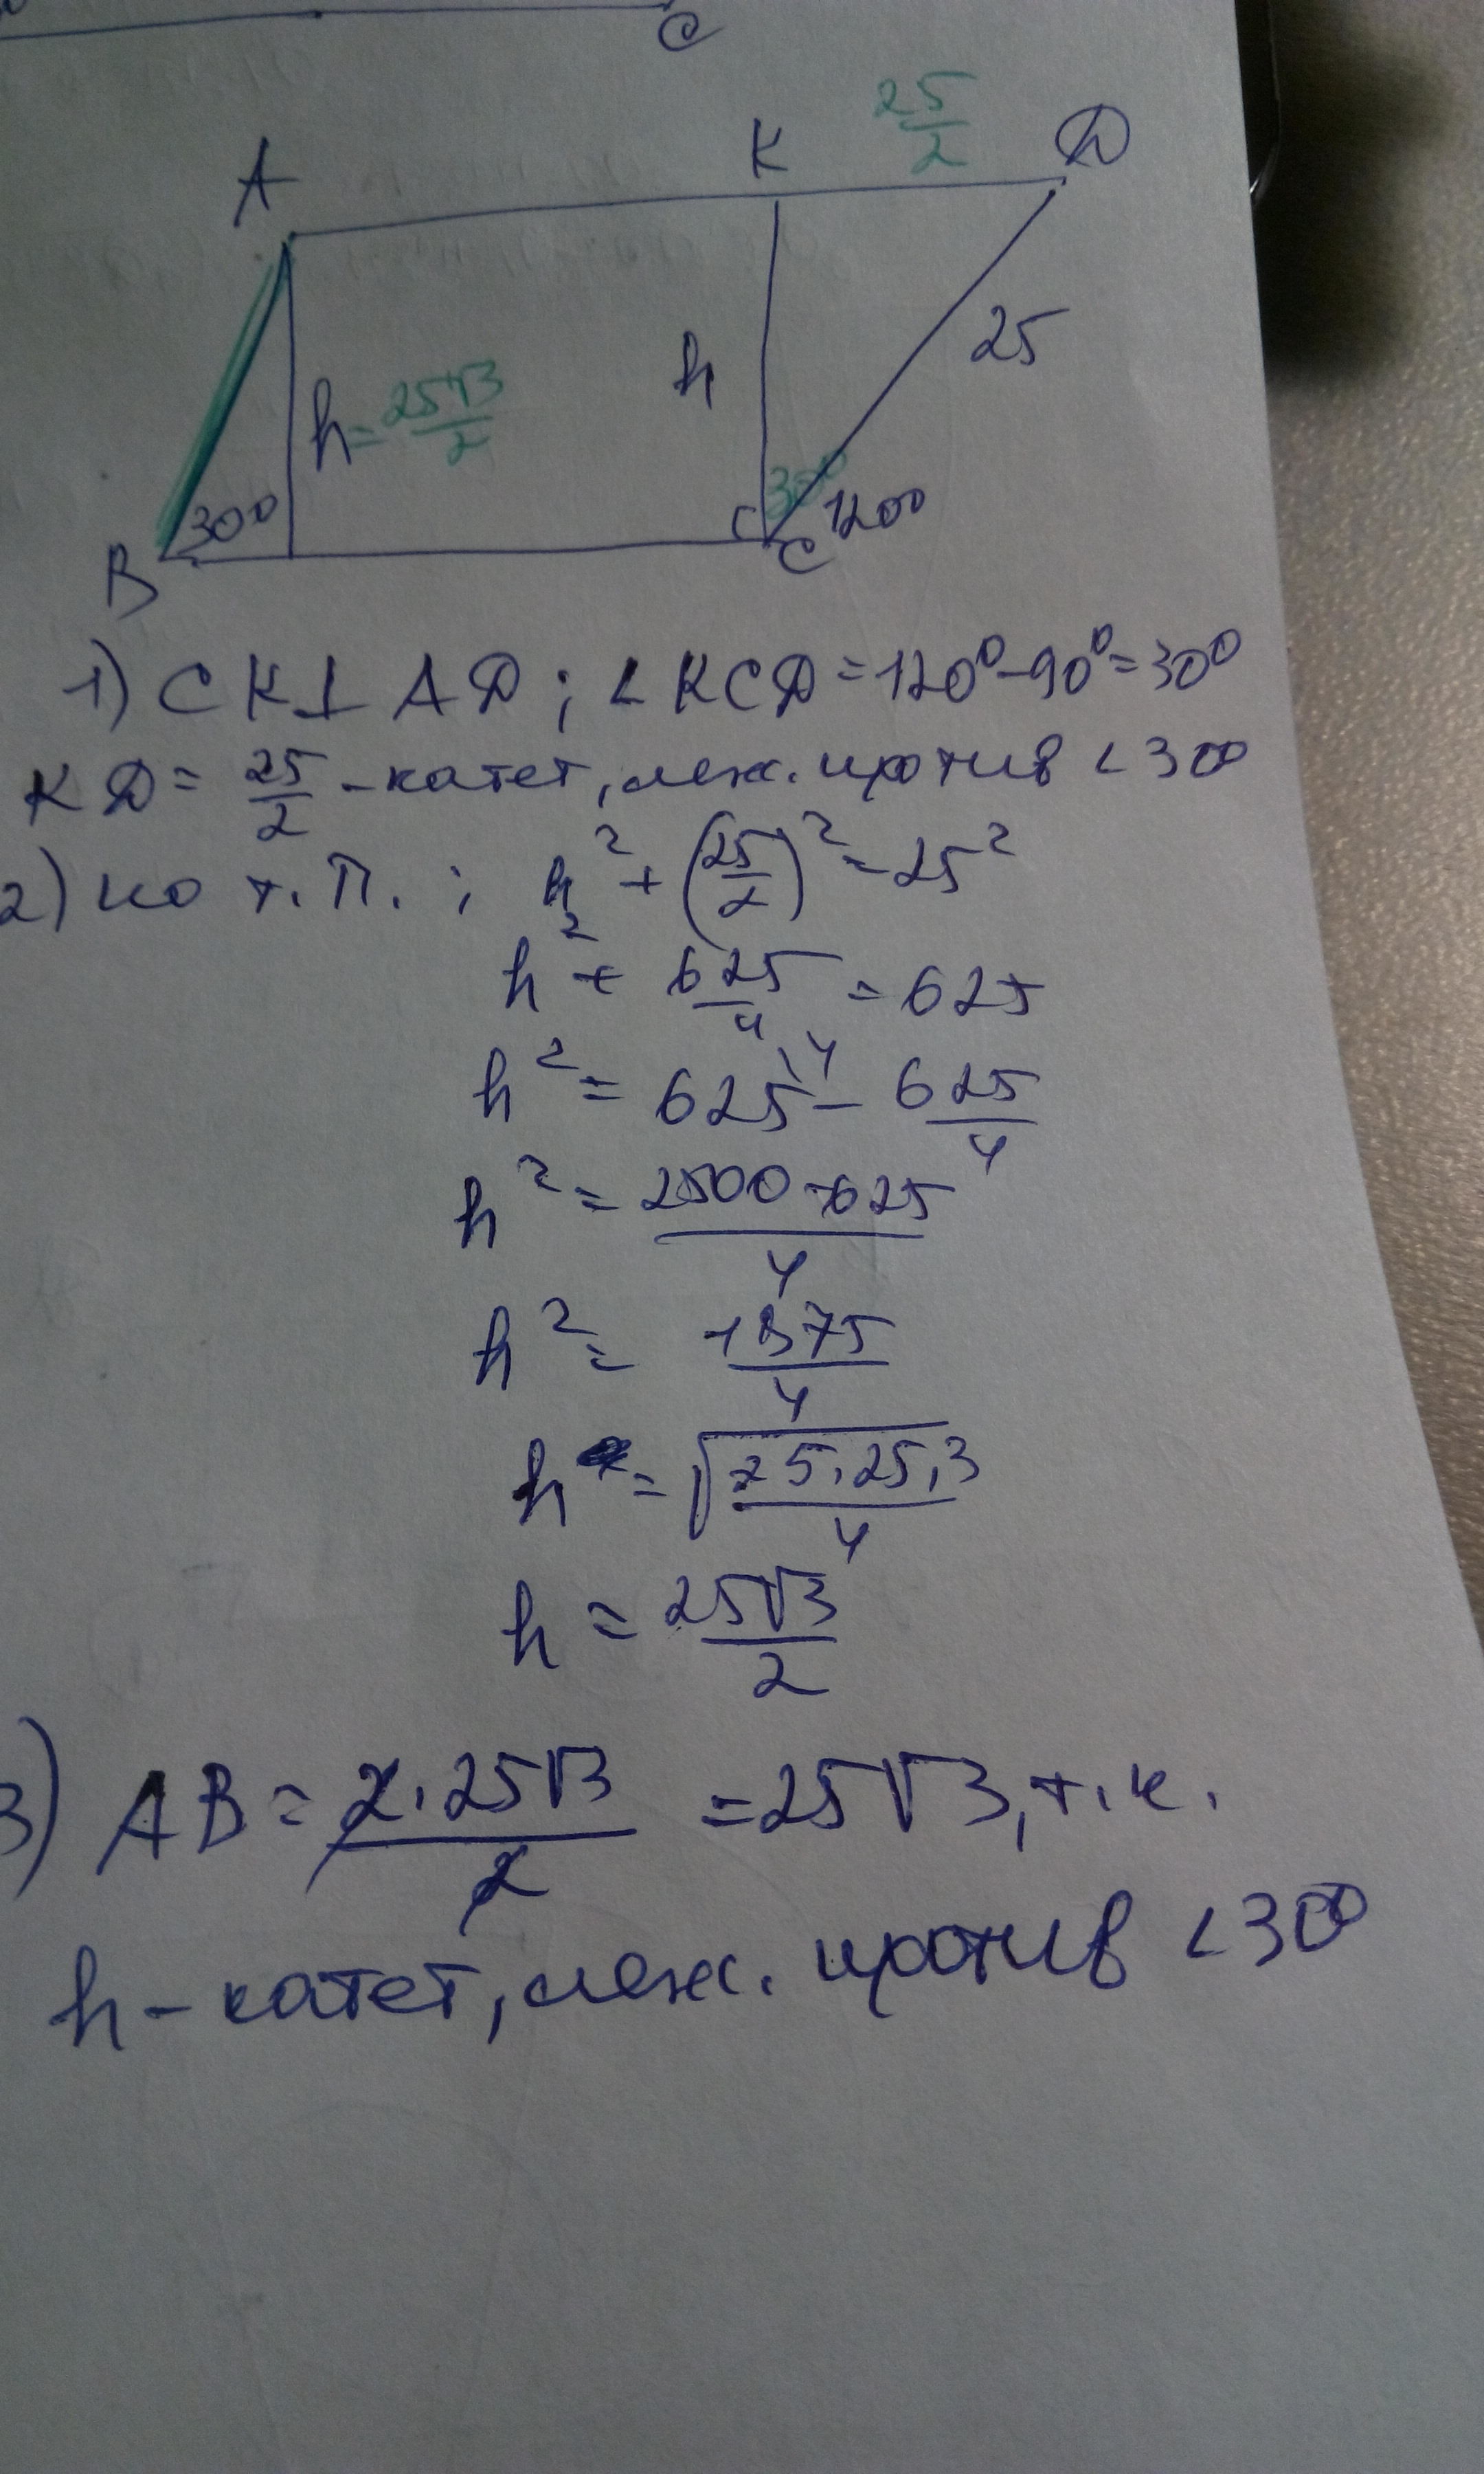 C
25/2
A K D
25
h
h = 25√3/2
30°
30°
120°
B C
1) CK⊥AD; ∠KCD = 120° - 90° = 30°
KD = 25/2 - катет, леж. против ∠30°
2) по т. П. : h² + (25/2)² = 25²
h² + 625/4 = 625
h² = 625\4 - 625/4
h² = (2500 - 625)/4
h² = 1875/4
h = √(25·25·3/4)
h = 25√3/2
3) AB = 2·25√3/2 = 25√3, т.к.
h - катет, леж. против ∠30°